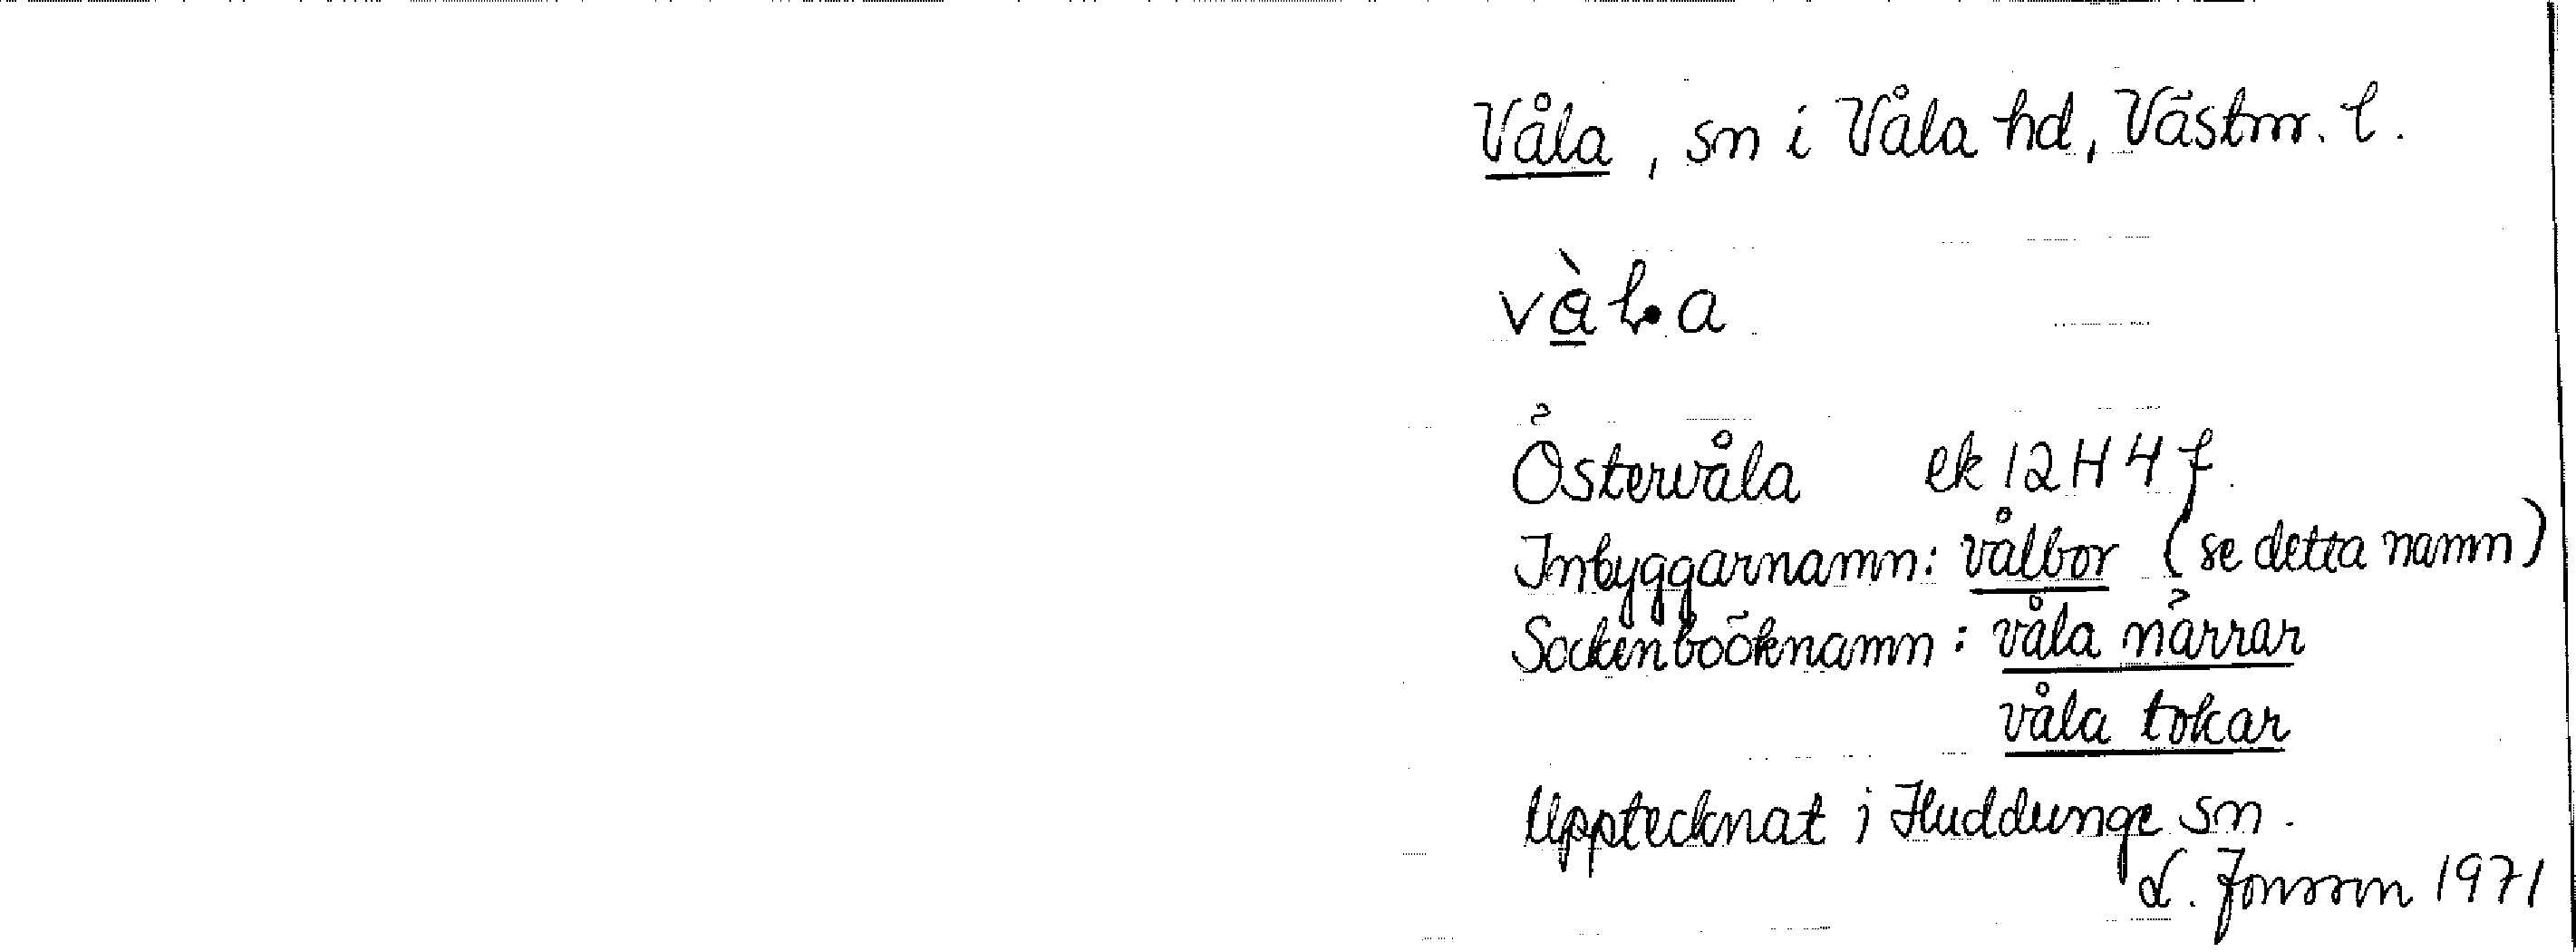 Våla, sn i Våla hd, Västm. l.
Östervåla ek 12 H 4 f.
Inbyggarnamn: vålbor (se detta namn)
Sockenböknamn: våla närrar
våla tokar
Upptecknat i Huddunge sn.
L. Jonsson 1971